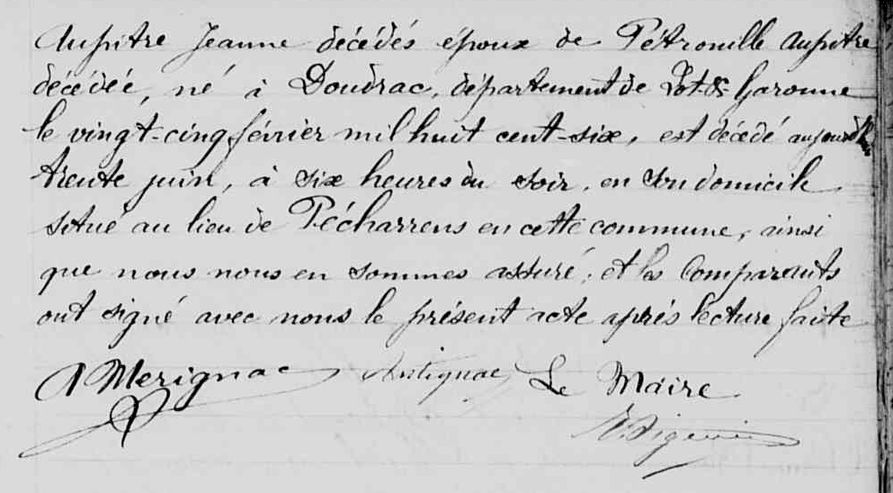 Aupitre Jeanne décédés époux de Pétronille Aupitre
décédée, né à Doudrac, département de Lot & Garonne
le vingt-cinq février mil huit cent-six, est décédé aujourd'h
trente juin, à six heures du soir, en son domicile
situé au lieu de Pécharrens en cette commune, ainsi
que nous nous en sommes assuré, et les Comparants
ont signé avec nous le présent acte après lecture faite
A Merignac Antignac Le Maire